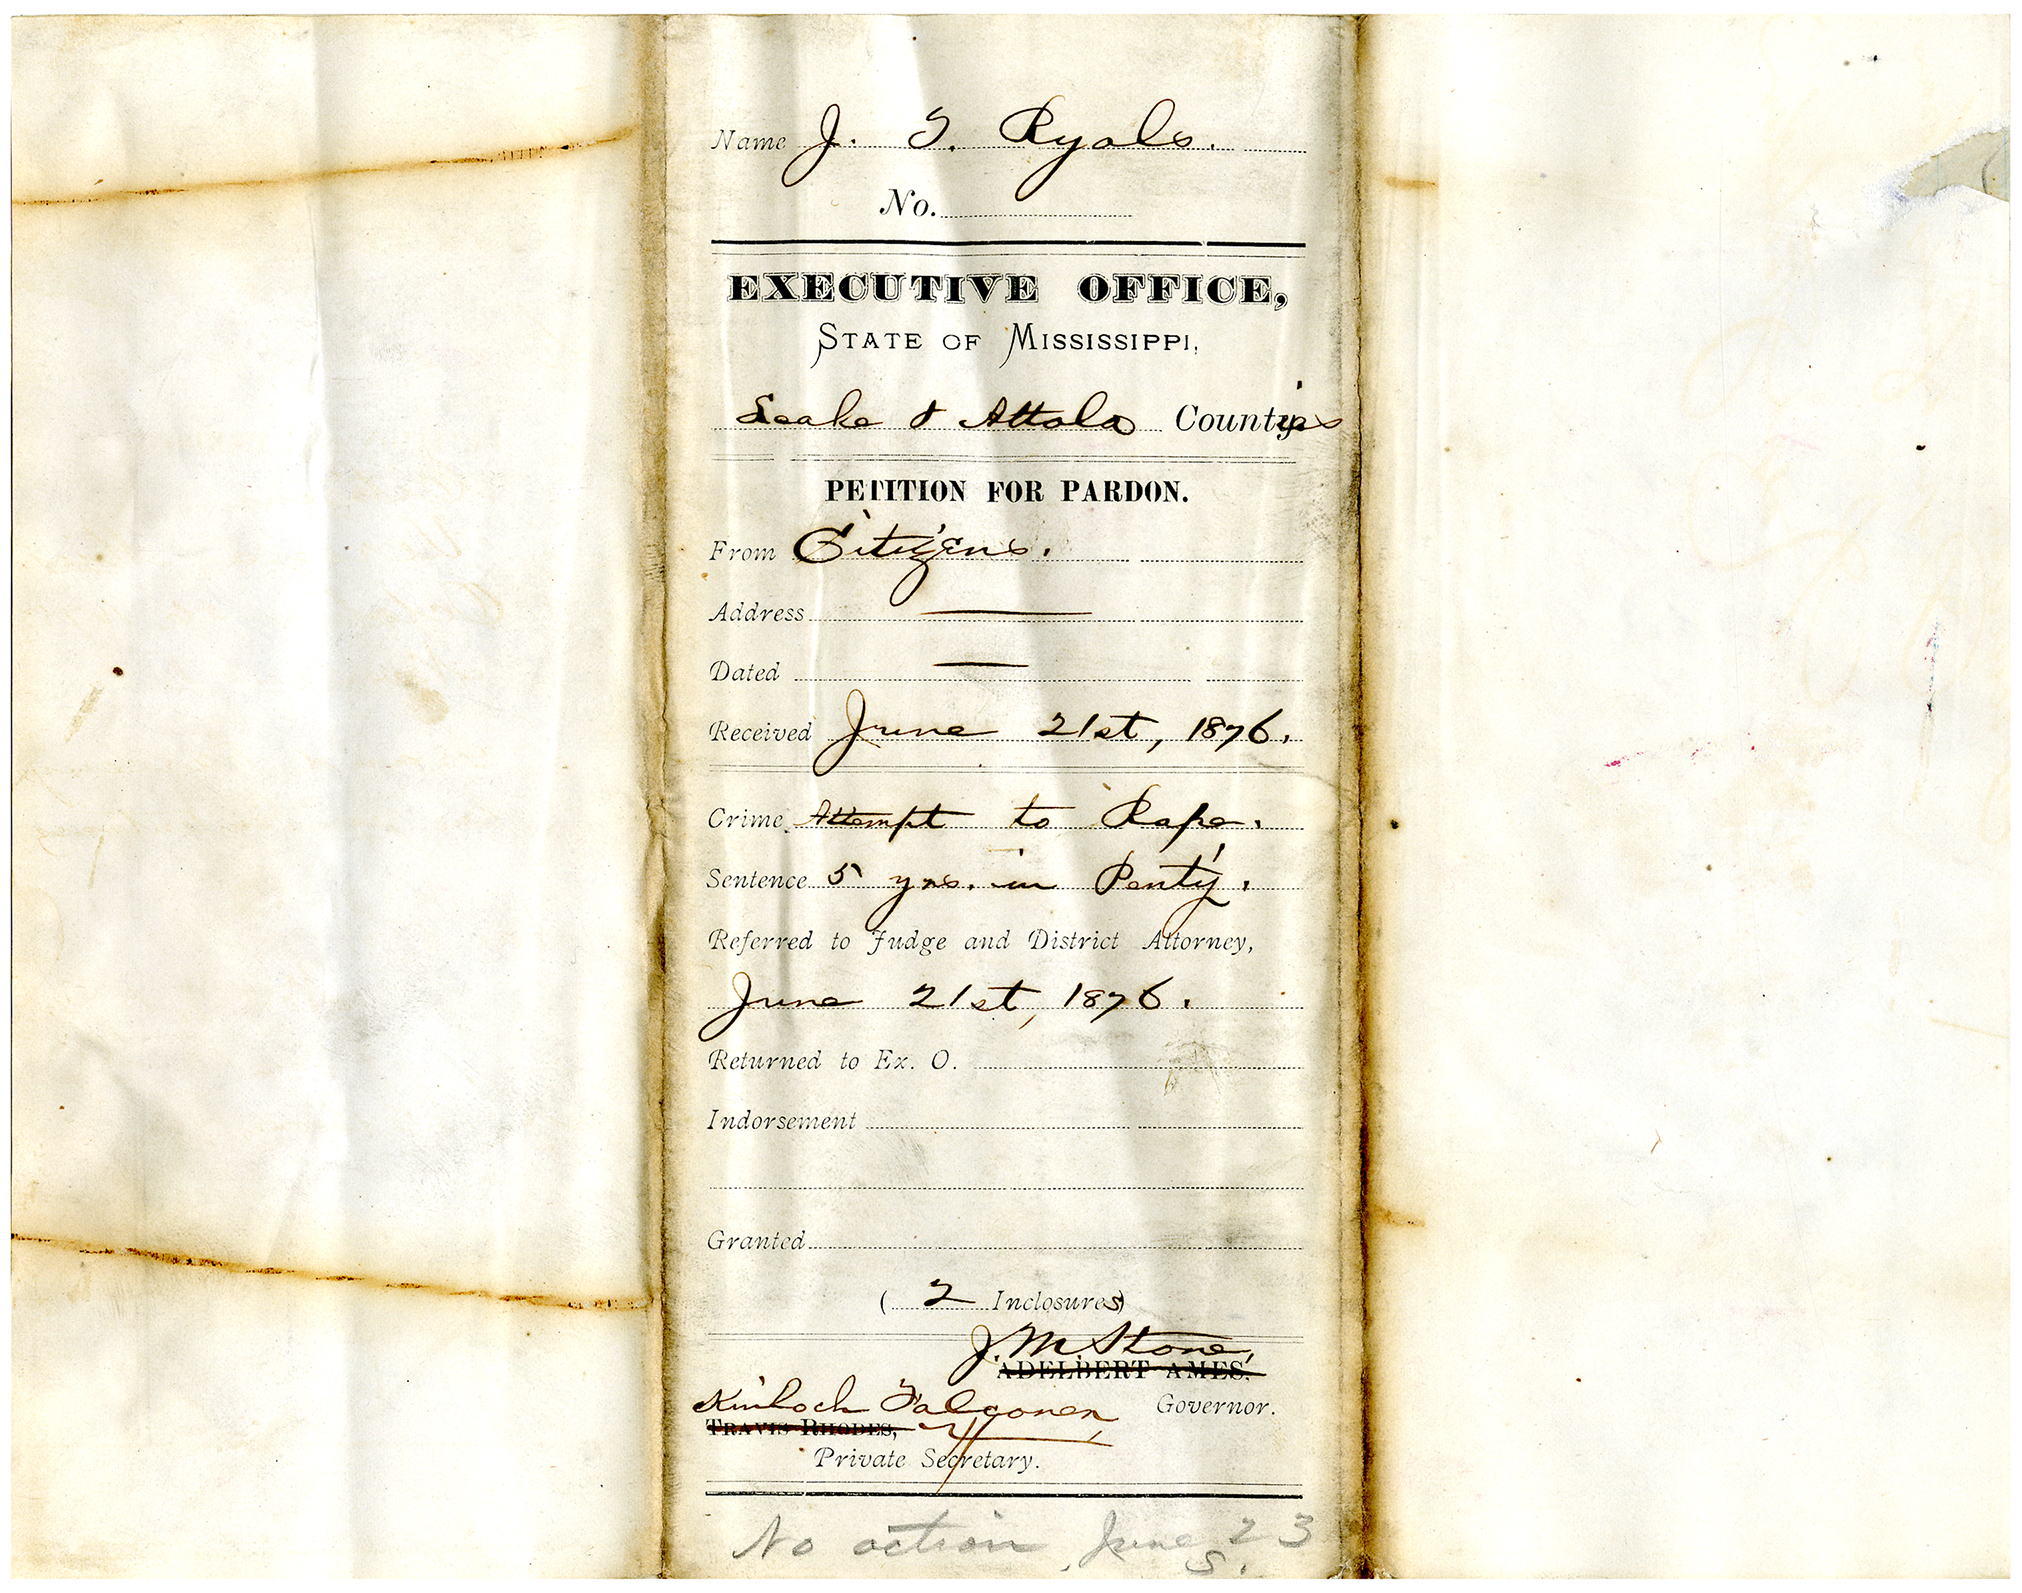 Name J. T. Ryals.
No.
EXECUTIVE OFFICE,
STATE OF MISSISSIPPI,
Leake & Attala Counties
PETITION FOR PARDON.
From Citizens.
Address —
Dated —
Received June 21st, 1876.
Crime Attempt to Rape.
Sentence 5 yrs. in Penty.
Referred to Judge and District Attorney,
June 21st, 1876.
Returned to Ex. O.
Indorsement
Granted
( 2 Inclosures)
J. M. Stone,
ADELBERT AMES,
Kinloch Falconer, Governor.
TRAVIS RHODES,
Private Secretary.
No action June 23
S.